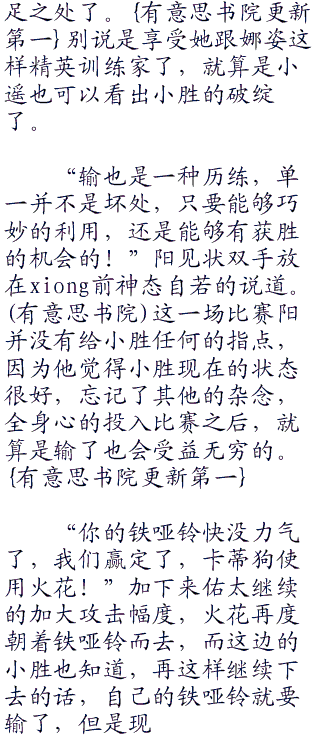 足之处了。{有意思书院更新
第一}别说是享受她跟娜姿这
样精英训练家了，就算是小
遥也可以看出小胜的破绽
了。
“输也是一种历练，单
一并不是坏处，只要能够巧
妙的利用，还是能够有获胜
的机会的！”阳见状双手放
在xiong前神态自若的说道。
(有意思书院)这一场比赛阳
并没有给小胜任何的指点，
因为他觉得小胜现在的状态
很好，忘记了其他的杂念，
全身心的投入比赛之后，就
算是输了也会受益无穷的。
{有意思书院更新第一}
“你的铁哑铃快没力气
了，我们赢定了，卡蒂狗使
用火花！”加下来佑太继续
的加大攻击幅度，火花再度
朝着铁哑铃而去，而这边的
小胜也知道，再这样继续下
去的话，自己的铁哑铃就要
输了，但是现